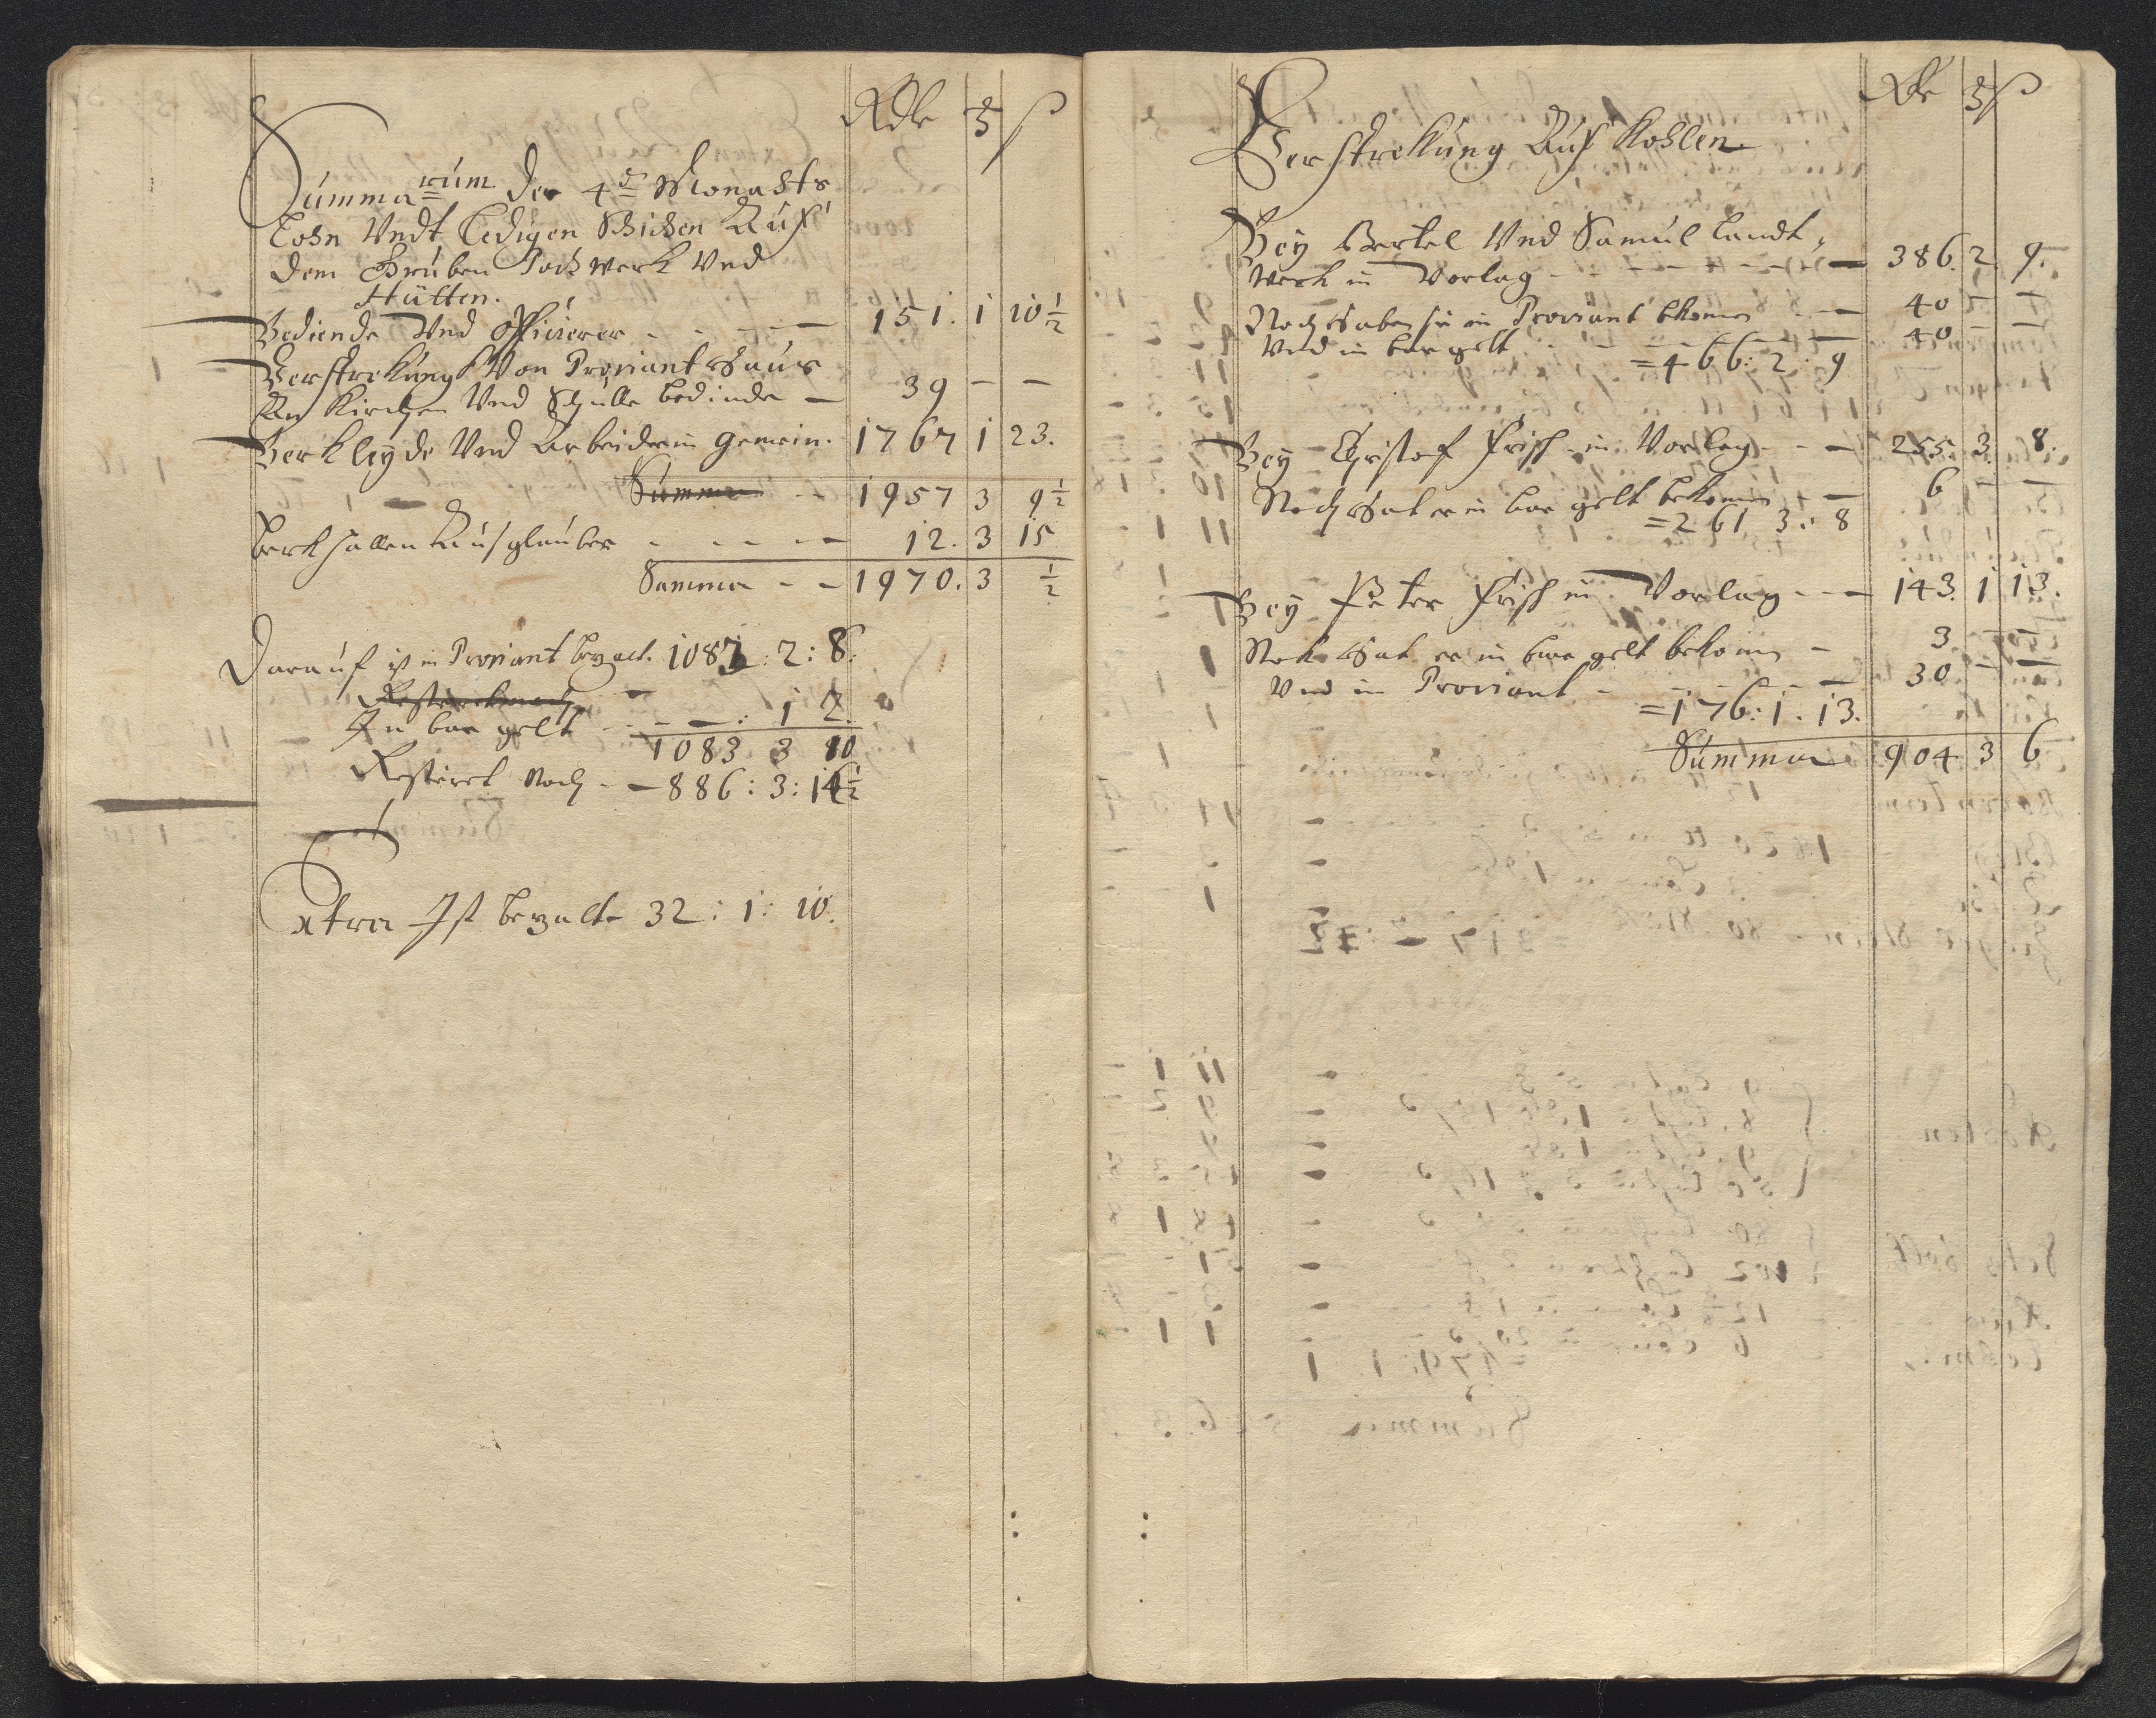 Rdle ʒ ß
Summarum der 4 Monahts
Lohn Undt Ledigen Schichen Auf
dem Gruben Pochwerk Und
Hütten.
Bediende Und officierer - - - - 151. 1 10½
Verstrekung Von Proviant Haus
An Kirchen Und Schulle bedinde - 39 - -
Berkleyde Und Arbeider in gemein. 1767 1 23.
Summa - - 1957 3 9½
Berkhallen Ausglauber - - - - 12. 3 15
Summa - - 1970. 3 ½
Darauf ist in Proviant bezalt. 1083: 2: 8.
In bar gelt - - - : 1 2.
1083 3 10
Restiert Noch - - 886: 3: 14½
Extra Ist bezalt 32: 1: 10.
Rdle ʒ ß
Verstrekung Auf Kohlen.
Bey Bertel Und Samul Landt,
Werk in Vorlag - - - - - - 386. 2 9.
Noch Haben sie in Proviant bkomen - - 40 - -
Und in bar gelt - - - - - - 40 - -
= 466: 2: 9
Bey Christof Frisch in Vorlag - - - 255. 3. 8.
Noch Hat er in bar gelt bekomen - 6 - -
= 261. 3: 8
Bey Peter Frisch in Vorlag - - - 143. 1 13.
Noch Hat er in bar gelt bekomen - 3 - -
Und in Proviant - - - - - 30 - -
= 176: 1. 13.
Summa 904 3 6